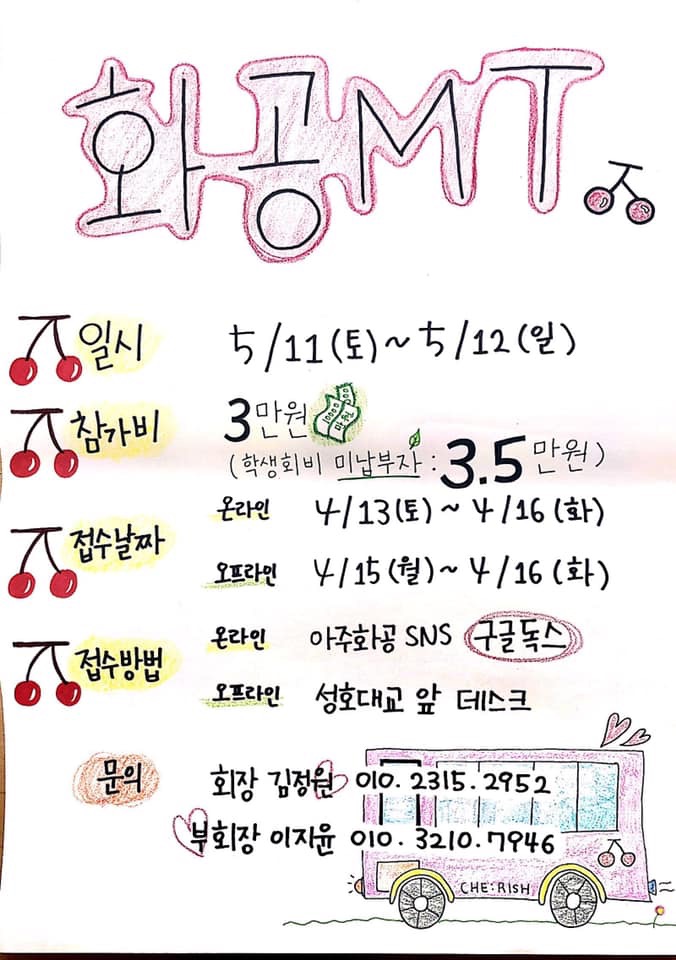 화공MT
일시 5/11(토)~5/12(일)
참가비 3만원
(학생회비 미납부자 : 3.5만원)
접수날짜 온라인 4/13(토)~4/16(화)
오프라인 4/15(월)~4/16(화)
접수방법 온라인 아주화공 SNS 구글독스
오프라인 성호대교 앞 데스크
문의 회장 김정원 010. 2315. 2952
부회장 이지윤 010. 3210. 7946
CHE:RISH